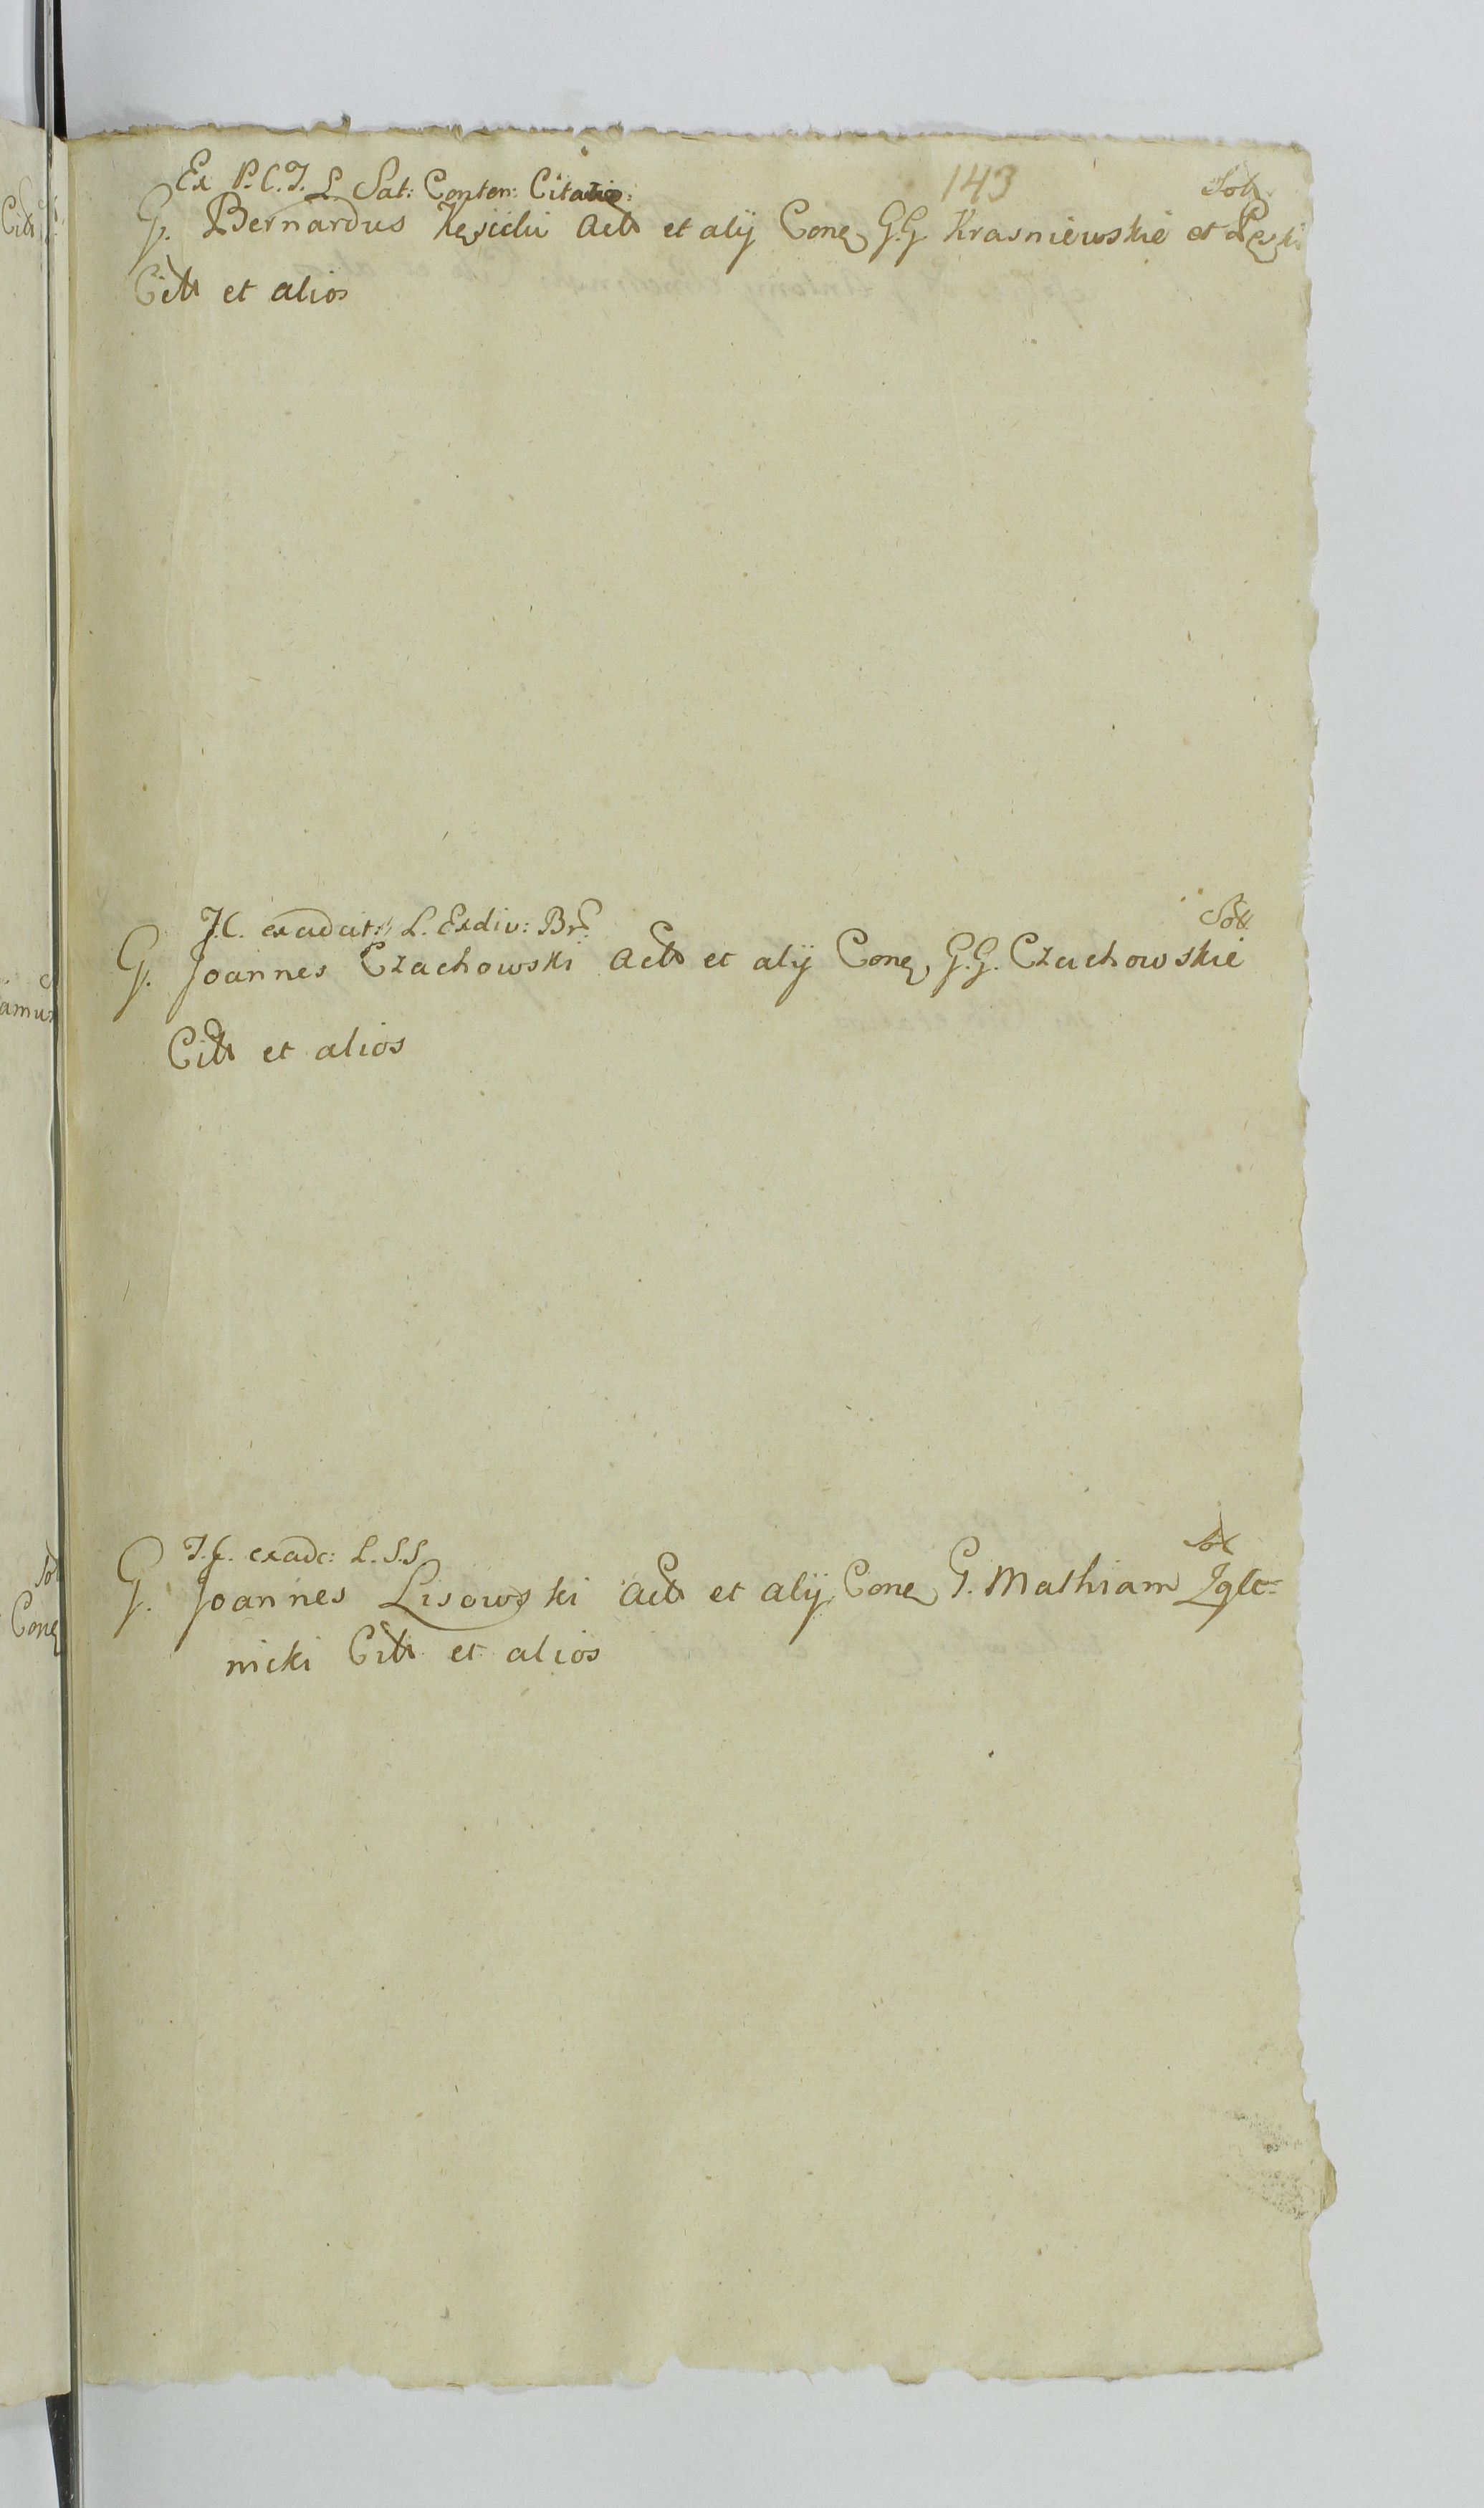 143
Ex P. C. J. L Sat: Conten: Citatio: Sol
G. Bernardus Kęsicki Act et alij Conq G.G Krasniewskie et Pęski
Citt et alios
J.C. exadcit: L. Exdiv: Br: Soll
G. Joannes Czachowski Act et alij Conq G.G. Czachowskie
Citt et alios
J.C. exadc: L. S.S Sol
G. Joannes Lisowski Act et alij Conq G. Mathiam Zgle-
nicki Citt et alios